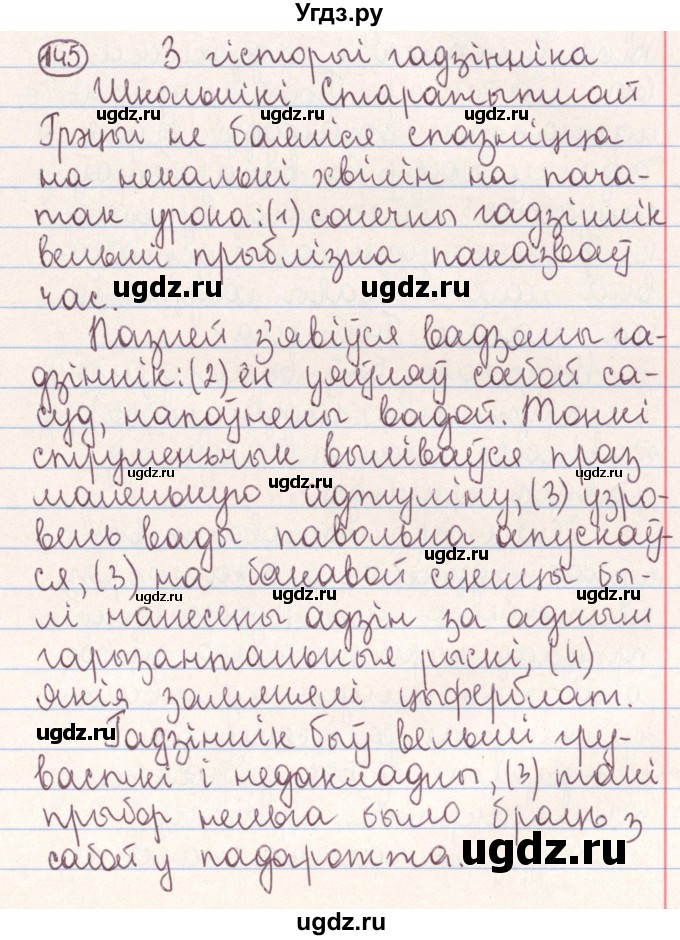 Угдз.ру
145 З гісторыі гадзінніка
Школьнікі Старажытнай
Грэцыі не баяліся спазніцца
на некалькі хвілін на пача-
так урока:(1) сонечны гадзіннік
вельмі прыблізна паказваў
час.
ugdz.ru ugdz.ru
Пазней з'явіўся вадзяны га-
дзіннік:(2) ён уяўляў сабой са-
ugdz.ru ugdz.ru
суд, напоўнены вадой. Тонкі
струменьчык выліваўся праз
ugdz.ru ugdz.ru ugdz.ru
маленькую адтуліну, (3) узро-
вень вады павольна апускаў-
ugdz.ru
ся, (3) на бакавой сценцы бы-
ugdz.ru ugdz.ru ugdz.ru
лі нанесены адзін за адным
гарызантальныя рыскі, (4)
якія замянялі цыферблат.
ugdz.ru
Гадзіннік быў вельмі гру-
ugdz.ru ugdz.ru
васткі і недакладны, (3) такі
прыбор нельга было браць з
сабой у падарожжа.
ugdz.ru
ugdz.ru